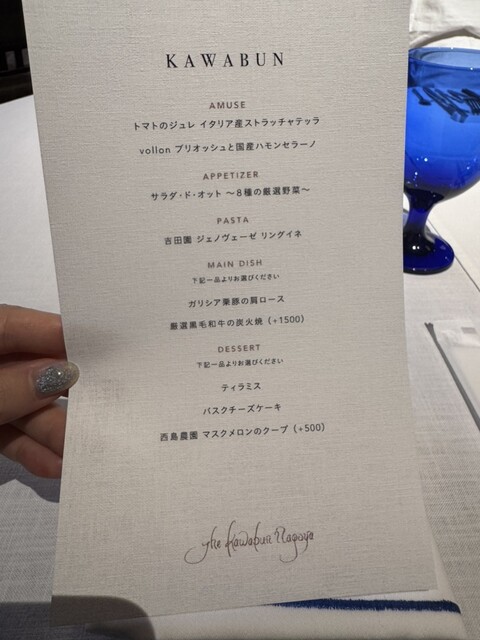 KAWABUN
AMUSE
トマトのジュレ イタリア産ストラッチャテッラ
vollon ブリオッシュと国産ハモンセラーノ
APPETIZER
サラダ・ド・オット ～8種の厳選野菜～
PASTA
吉田園 ジェノヴェーゼ リングイネ
MAIN DISH
下記一品よりお選びください
ガリシア栗豚の肩ロース
厳選黒毛和牛の炭火焼 (+1500)
DESSERT
下記一品よりお選びください
ティラミス
バスクチーズケーキ
西島農園 マスクメロンのクープ (+500)
The Kawabun Nagoya